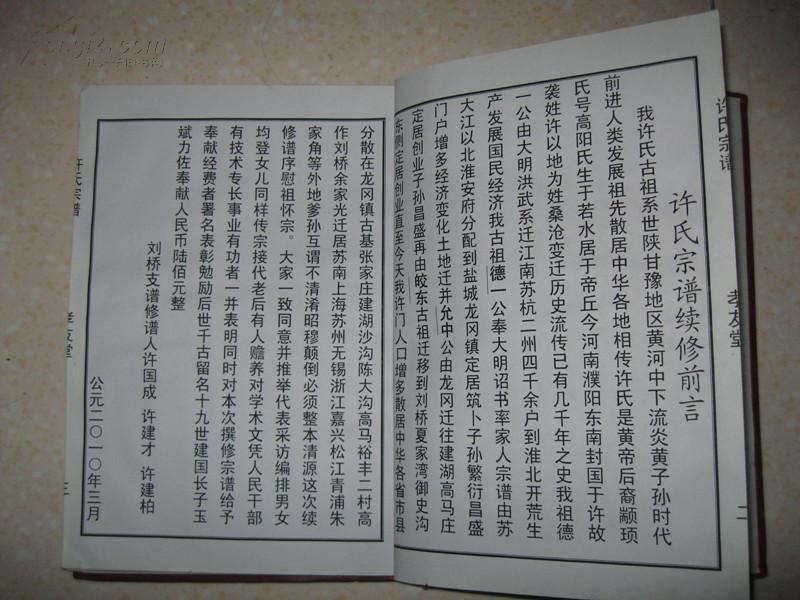 许氏宗谱
孝友堂
二
许氏宗谱续修前言
我许氏古祖系世陕甘豫地区黄河中下流炎黄子孙时代
前进人类发展祖先散居中华各地相传许氏是黄帝后裔颛顼
氏号高阳氏生于若水居于帝丘今河南濮阳东南封国于许故
袭姓许以地为姓桑沧变迁历史流传已有几千年之史我祖德
一公由大明洪武系迁江南苏杭二州四千余户到淮北开荒生
产发展国民经济我古祖德一公奉大明诏书率家人宗谱由苏
大江以北淮安府分配到盐城龙冈镇定居筑卜子孙繁衍昌盛
门户增多经济变化土地迁并允中公由龙冈迁往建湖高马庄
定居创业子孙昌盛再由皎东古祖迁移到刘桥夏家湾御史沟
东侧定居创业直至今天我许门人口增多散居中华各省市县
分散在龙冈镇古基张家庄建湖沙沟陈大沟高马裕丰二村高
作刘桥余家光迁居苏南上海苏州无锡浙江嘉兴松江青浦朱
家角等外地爹孙互谓不清淆昭穆颠倒必须整本清源这次续
修谱序慰祖怀宗。大家一致同意并推举代表采访编排男女
均登女儿同样传宗接代老后有人赡养对学术文凭人民干部
有技术专长事业有功者一并表明同时对本次撰修宗谱给予
奉献经费者署名表彰勉励后世千古留名十九世建国长子玉
斌力佐奉献人民币陆佰元整
刘桥支谱修谱人许国成 许建才 许建柏
公元二〇一〇年三月
许氏宗谱
孝友堂
三